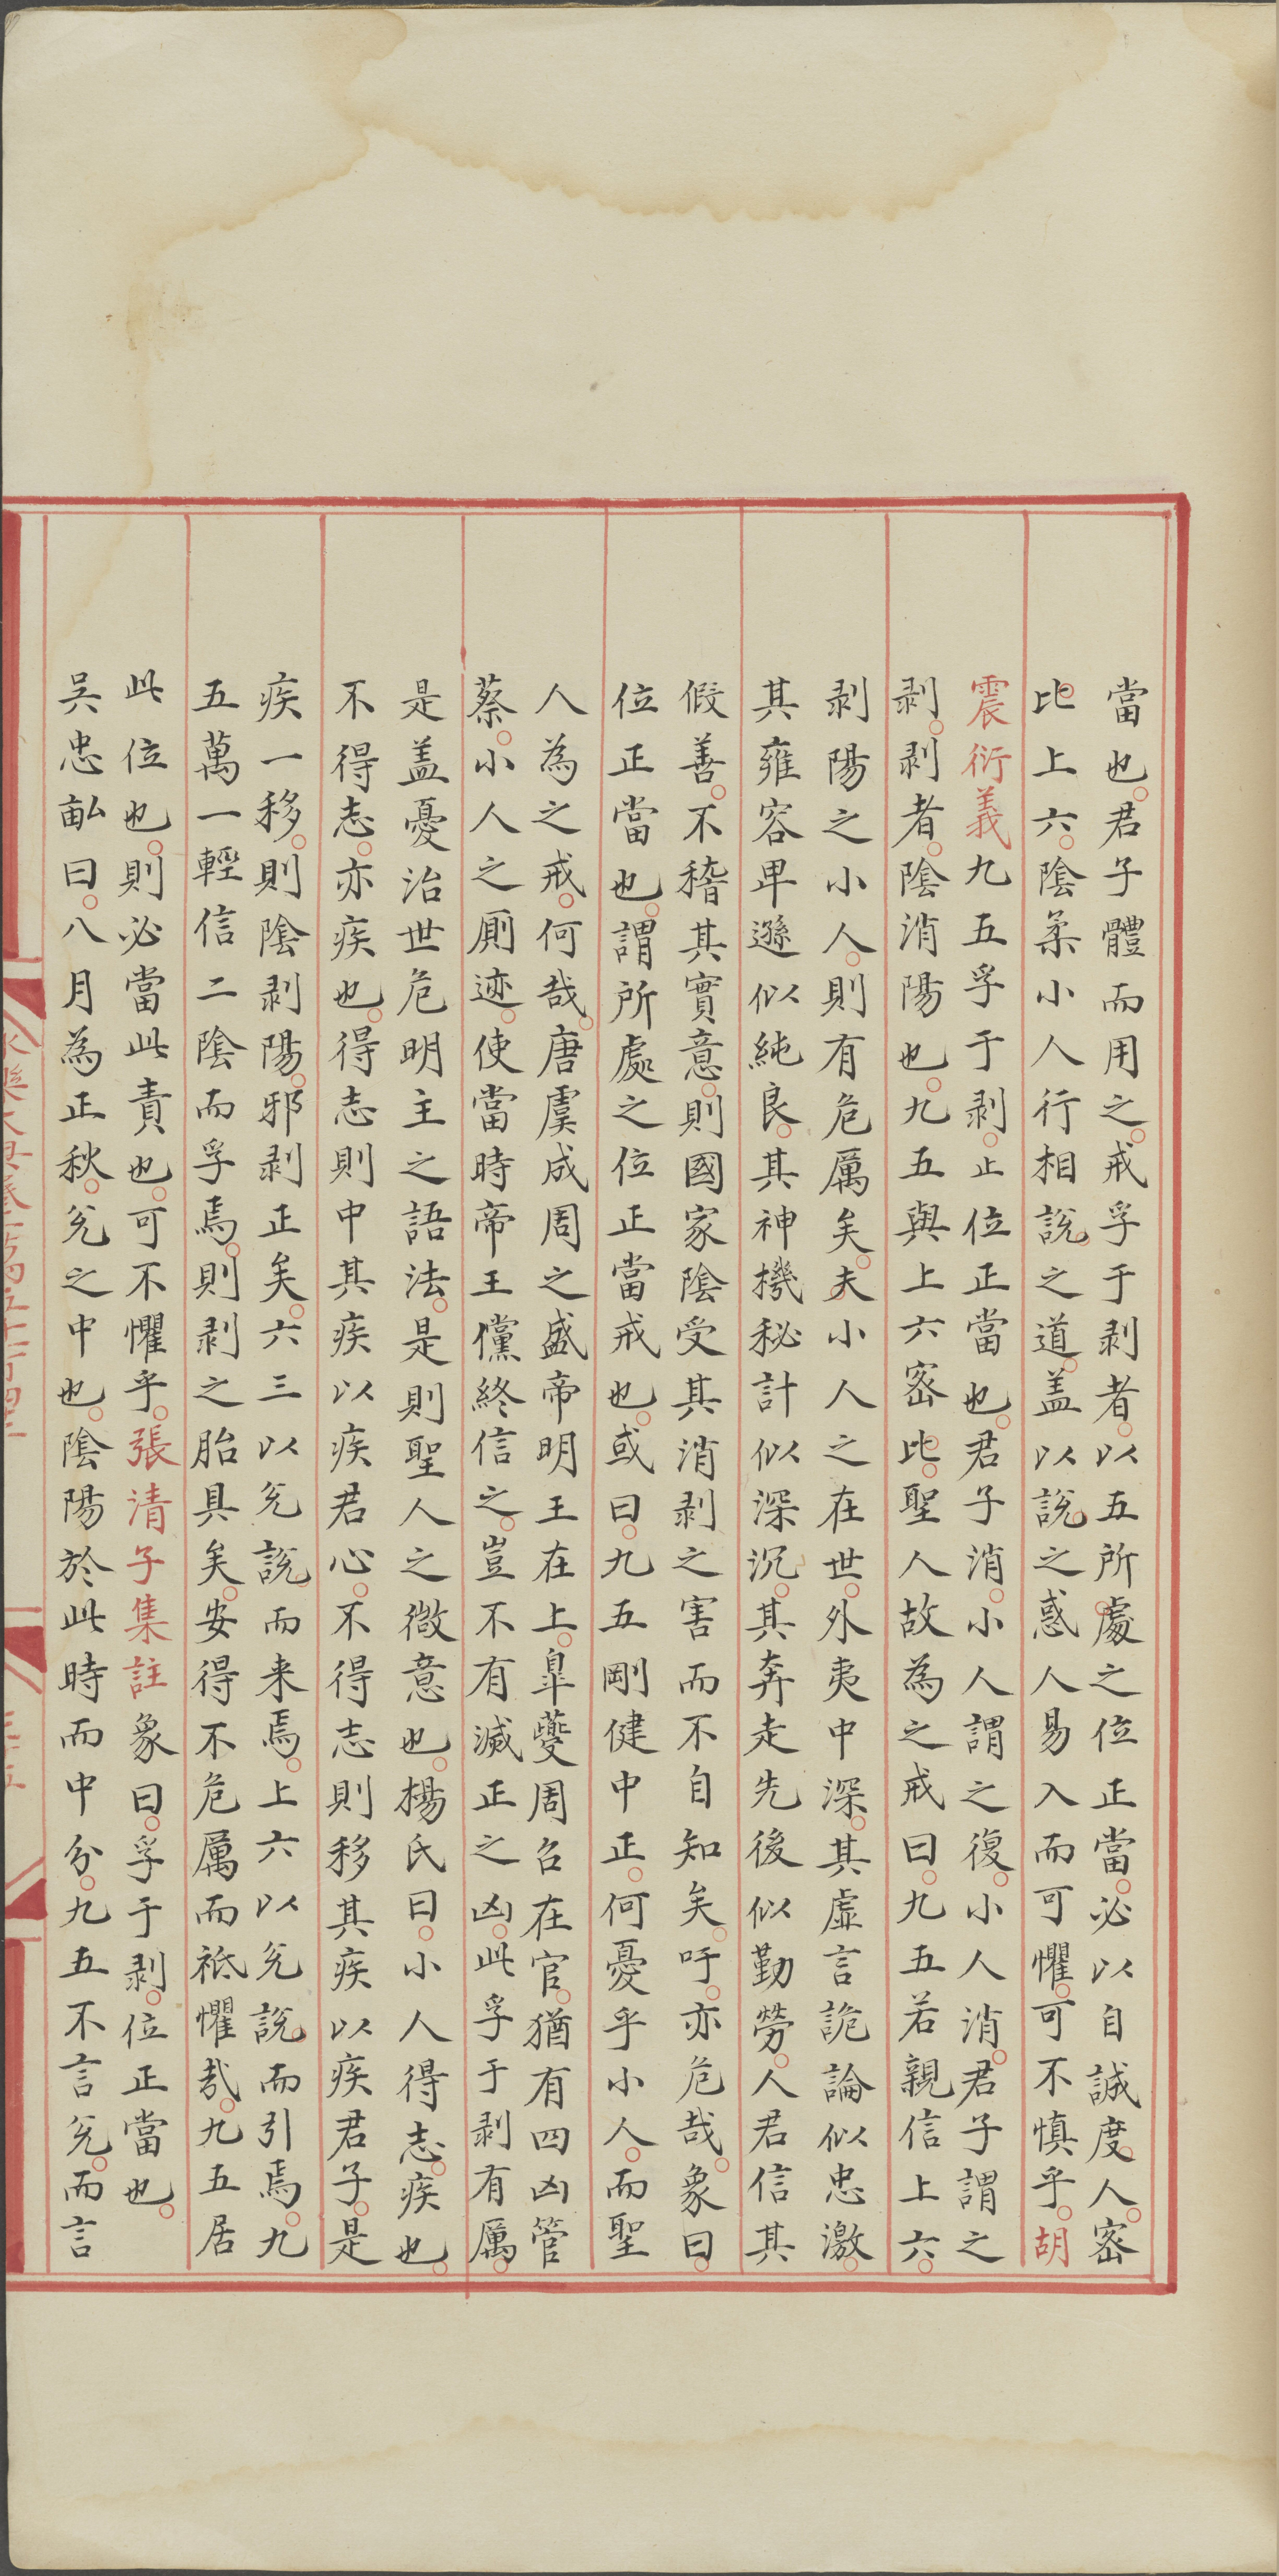 當也君子體而用之戒孚于剥者以五所處之位正當必以自誠度人密
比上六陰柔小人行相說之道盖以說之惑人易入而可懼可不慎乎胡
震衍義九五孚于剥止位正當也君子消小人謂之復小人消君子謂之
剥剥者陰消陽也九五與上六宻比聖人故為之戒曰九五若親信上六
剥陽之小人則有危厲矣夫小人之在世外夷中深其虛言詭論似忠激
其雍容卑遜似純良其神機秘計似深沉其奔走先後似勤勞人君信其
假善不稽其實意則國家陰受其消剥之害而不自知矣吁亦危哉象曰
位正當也謂所處之位正當戒也或曰九五剛健中正何憂乎小人而聖
人為之戒何哉唐虞成周之盛帝明王在上臯夔周召在官猶有四凶管
蔡小人之厠迹使當時帝王儻終信之豈不有滅正之凶此孚于剥有厲
是盖憂治世危明主之語法是則聖人之微意也楊氏曰小人得志疾也
不得志亦疾也得志則中其疾以疾君心不得志則移其疾以疾君子是
疾一移則陰剥陽邪剥正矣六三以兊說而来焉上六以兊說而引焉九
五萬一輕信二陰而孚焉則剥之胎具矣安得不危厲而祗懼哉九五居
此位也則必當此責也可不懼乎張清子集註象曰孚于剥位正當也
吴忠畝曰八月為正秋兊之中也陰陽於此時而中分九五不言兊而言